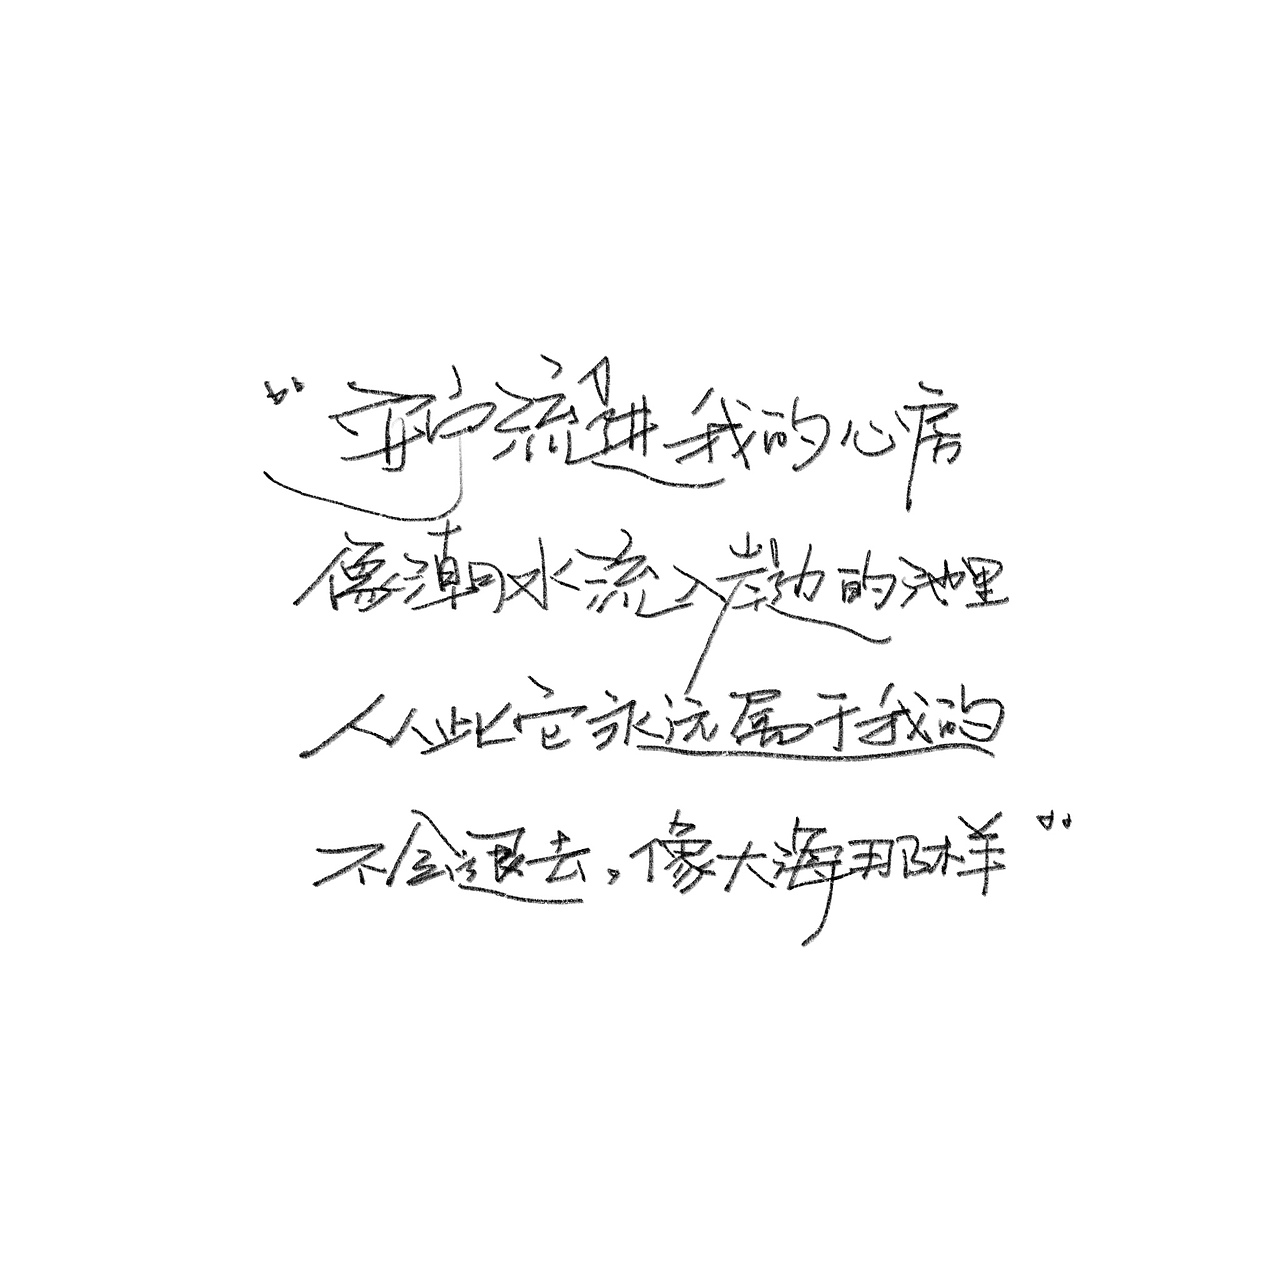 “流进我的心房
像潮水流入岸边的池里
从此它永远属于我的
不会退去，像大海那样”